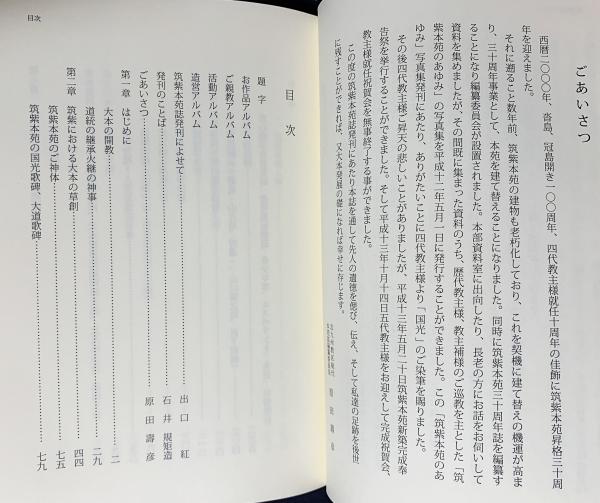 ごあいさつ
西暦二〇〇〇年、沓島、冠島開き一〇〇周年、四代教主様就任十周年の佳節に筑紫本苑昇格三十周
年を迎えました。
それに遡ること数年前、筑紫本苑の建物も老朽化しており、これを契機に建て替えの機運が高ま
り、三十周年事業として、本苑を建て替えることになりました。同時に筑紫本苑三十周年誌を編纂す
ることになり編纂委員会が設置されました。本部資料室に出向したり、長老の方にお話をお伺いして
資料を集めましたが、その間既に集まった資料のうち、歴代教主様、教主補様のご巡教を主とした「筑
紫本苑のあゆみ」の写真集を平成十二年五月一日に発行することができました。この「筑紫本苑のあ
ゆみ」写真集発刊にあたり、ありがたいことに四代教主様より「国光」のご染筆を賜りました。
その後四代教主様ご昇天の悲しいことがありましたが、平成十三年五月二十日筑紫本苑新築完成奉
告祭を挙行することができました。そして平成十三年十月十四日五代教主様をお迎えして完成祝賀会、
教主様就任祝賀会を無事終了する事ができました。
この度の筑紫本苑誌発刊にあたり本誌を通して先人の遺徳を偲び、伝え、そして私達の足跡を後世
に残すことができれば、又大本発展の礎になれば幸せに存じます。
目次
目次
題字
お作品アルバム
ご親教アルバム
活動アルバム
造営アルバム
筑紫本苑誌発刊によせて 出口 紅
発刊のことば 石井 規矩造
ごあいさつ 原田 壽彦
第一章 はじめに
大本の開教 二
道統の継承火継の神事 二九
第二章 筑紫における大本の草創 四四
筑紫本苑のご神体 七五
筑紫本苑の国光歌碑、大道歌碑 七九